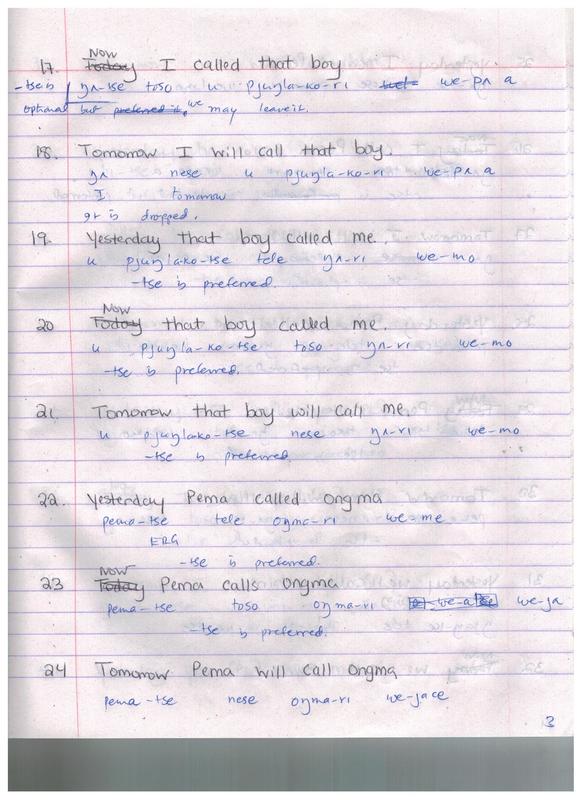 Now
17. Today I called that boy
-tse is ŋʌ-tse toso u pjuŋla-ko-ri we-pʌ a
optional but preferred it, we may leave it.
18. Tomorrow I will call that boy.
ŋʌ nese u pjuŋla-ko-ri we-pʌ a
I tomorrow
is dropped.
19. Yesterday that boy called me.
u pjuŋla-ko-tse tele ŋʌ-ri we-mo
-tse is preferred.
Now
20 Today that boy called me.
u pjuŋla-ko-tse toso ŋʌ-ri we-mo
-tse is preferred.
21. Tomorrow that boy will call me.
u pjuŋla-ko-tse nese ŋʌ-ri we-mo
-tse is preferred.
22. Yesterday Pema called Ongma
pema-tse tele oŋma-ri we-me
ERG
-tse is preferred.
Now
23 Today Pema calls Ongma
pema-tse toso oŋma-ri we-ja
-tse is preferred.
24 Tomorrow Pema will call Ongma
pema-tse nese oŋma-ri we-jace
3